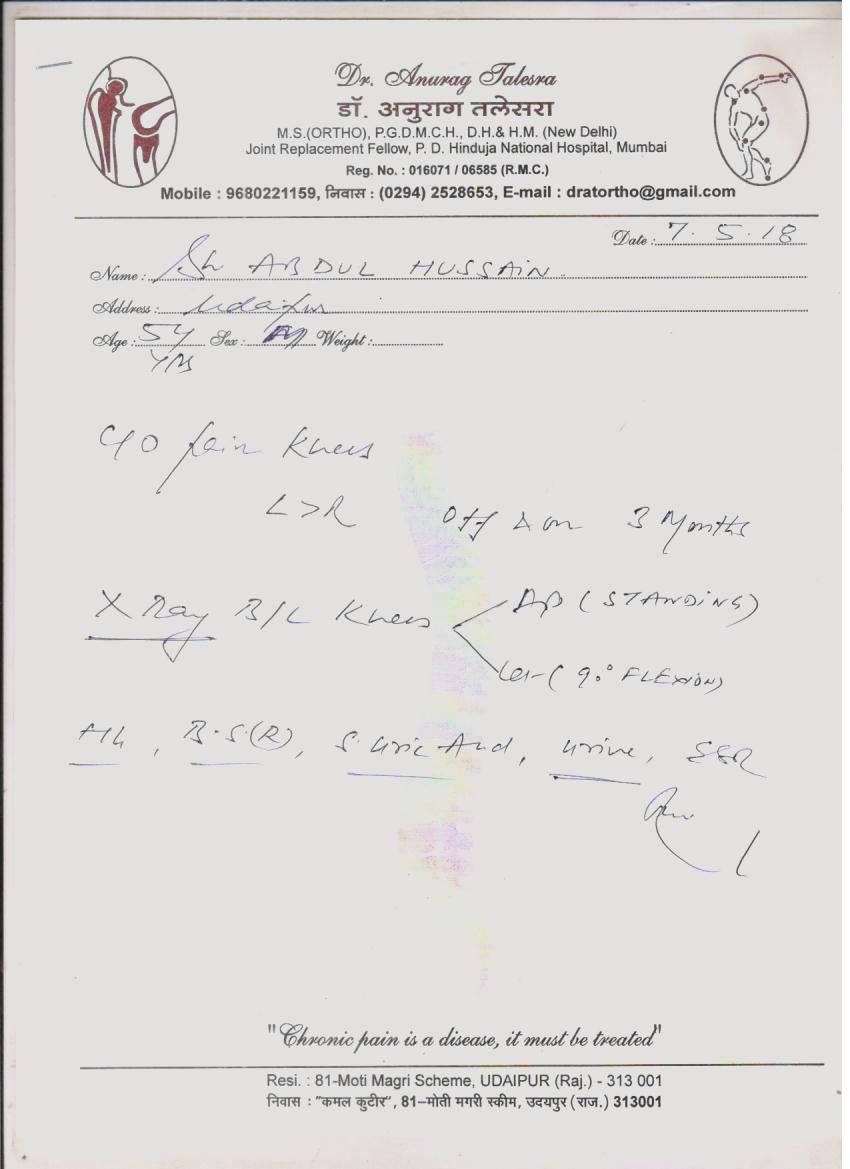 Dr. Anurag Talesra
डॉ. अनुराग तलेसरा
M.S.(ORTHO), P.G.D.M.C.H., D.H.& H.M. (New Delhi)
Joint Replacement Fellow, P. D. Hinduja National Hospital, Mumbai
Reg. No. : 016071 / 06585 (R.M.C.)
Mobile : 9680221159, निवास : (0294) 2528653, E-mail : dratortho@gmail.com
Date : 7.5.18
Name : Sh ABDUL HUSSAIN
Address : Udaipur
Age : 54 Sex : M Weight :
YRS
C/O pain Knees
L>R off & on 3 Months
X Ray B/L Knees AP (STANDING)
Lat (90° FLEXION)
Hb, B.S(R), S. Uric Acid, Urine, ESR
"Chronic pain is a disease, it must be treated"
Resi. : 81-Moti Magri Scheme, UDAIPUR (Raj.) - 313 001
निवास : "कमल कुटीर", 81–मोती मगरी स्कीम, उदयपुर (राज.) 313001